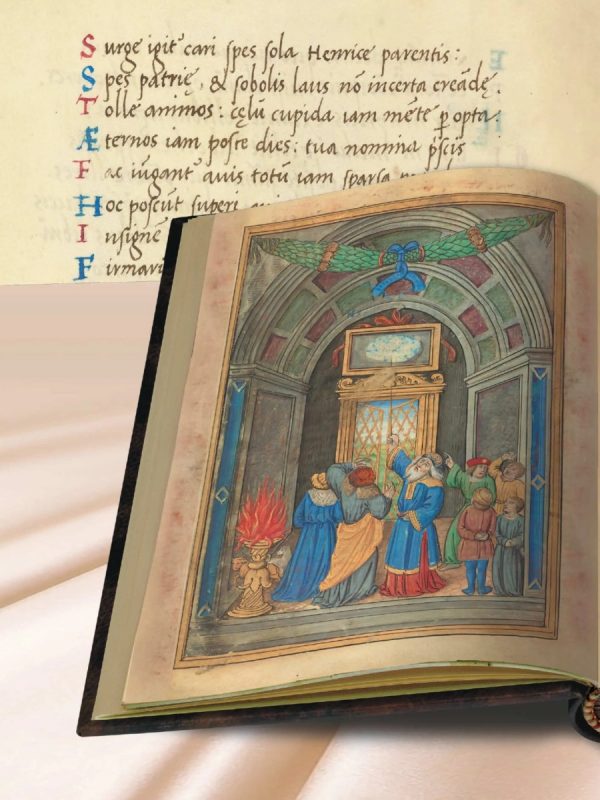 Surge igit cari spes sola Henrice parentis:
Spes patrię, & sobolis laus nō incerta creādę.
Tolle animos: cęlū cupida iam mēte ꝑ opta:
Æternos iam posce dies: tua nomina p̄scis
Fac iugant auis totū iam sparsa
Hoc poscūt superi,
Insigne
Firmari